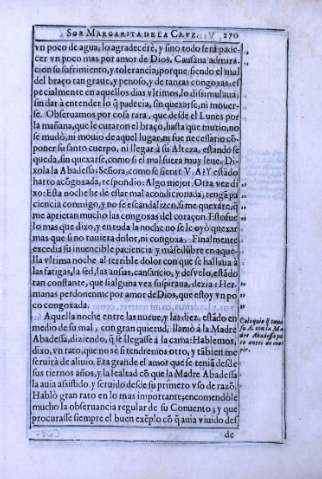 SOR MARGARITA DE LA CRVZ. 270
vn poco de agua, lo agradeceré, y sino todo será pade-
cer vn poco mas por amor de Dios. Causaua admira-
cion su sufrimiento, y tolerancia; porque siendo el mal
del braço tan graue, y penoso, y de tantas congoxas, es-
pecialmente en aquellos dias vltimos, lo dissimulaua,
sin dar à entender lo q̃ padecia, sin quexarse, ni mouer-
se. Obseruamos por cosa rara, que desde el Lunes por
la mañana, que le curaron el braço, hasta que murio, no
se mudò, ni mouio de aquel lugar, ni fue necessario cō-
poner su santo cuerpo, ni llegar à su Alteza, estandose
queda, sin quexarse, como si el mal fuera muy leue. Di-
xola la Abadessa: Señora, como se siente V. A? Y estādo
harto acōgoxada, respondio: Algo mejor. Otra vez di-
xo: Esta noche he de estar mal acondicionada, tengā pa-
ciencia conmigo, y no se escandalizen, si me quexare, q̃
me aprietan mucho las congoxas del coraçon. Esto fue
lo mas que dixo, y en toda la noche no se le oyò quexar
mas que si no tuuiera dolor, ni congoxa. Finalmente
excedia su inuencible paciencia y màsedūbre en aque-
lla vltima noche al terrible dolor con que se hallaua à
las fatigas, la sed, las ansias, cansancio, y desvelo, estādo
tan constante, que si alguna vez suspiraua, dezia: Her-
manas perdonenme por amor de Dios, que estoy vn po-
co congoxada.
Aquella noche entre las nueue, y las diez, estādo en
medio de su mal, con gran quietud, llamò à la Madre
Abadessa, diziendo, q̃ se llegasse à la cama: Hablemos,
dixo, vn rato, que no se si tendremos otro, y tābiē me
seruirá de aliuio. Era grande el amor que se teniā desde
sus tiernos años, y la lealtad cō que la Madre Abadessa
la auia assistido, y seruido desde su primero vso de razō.
Hablò gran rato en lo mas importante; encomendòle
mucho la obseruancia regular de su Conuento, y que
procurasse siempre el buen exēplo cō q̃ auia viuido des-
de
Coloquio q̃ tuuo
su A. con la Ma-
dre Abadessa po-
co antes de mo-
rir.